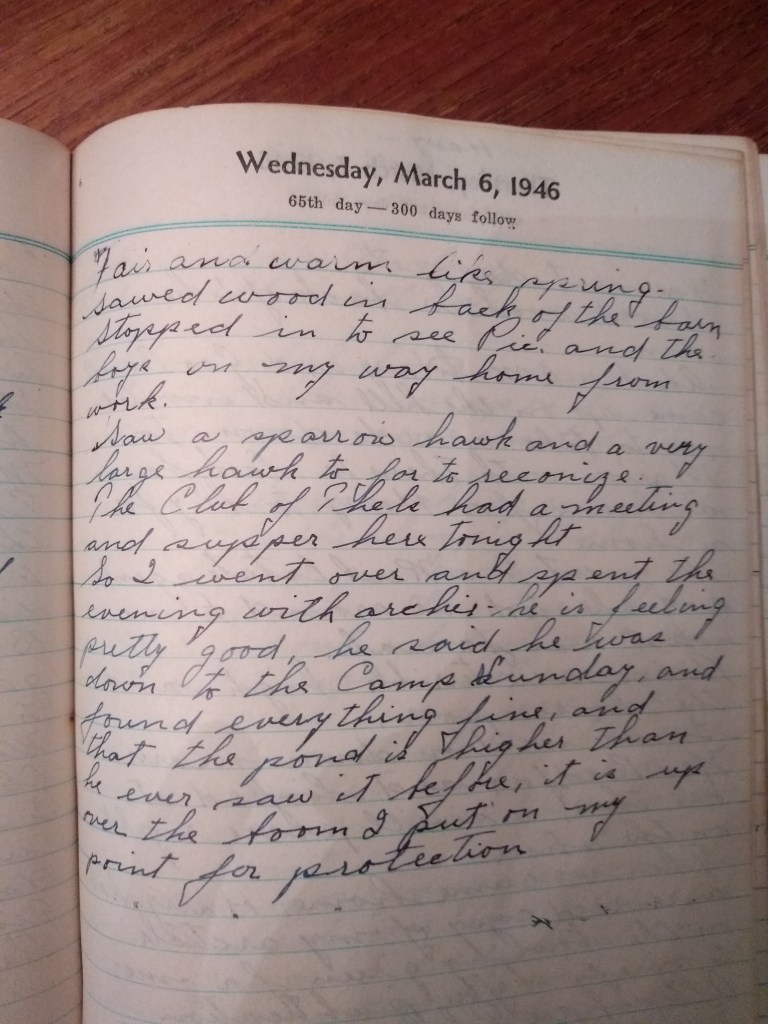 Wednesday, March 6, 1946
65th day — 300 days follow
Fair and warm like spring.
sawed wood in back of the barn
stopped in to see Pic. and the
boys on my way home from
work.
Saw a sparrow hawk and a very
large hawk to far to reconize.
The Club of had a meeting
and supper here tonight
So I went over and spent the
evening with archie - he is feeling
pretty good, he said he was
down to the Camp Sunday, and
found everything fine, and
that the pond is higher than
he ever saw it before, it is up
over the boom I put on my
point for protection